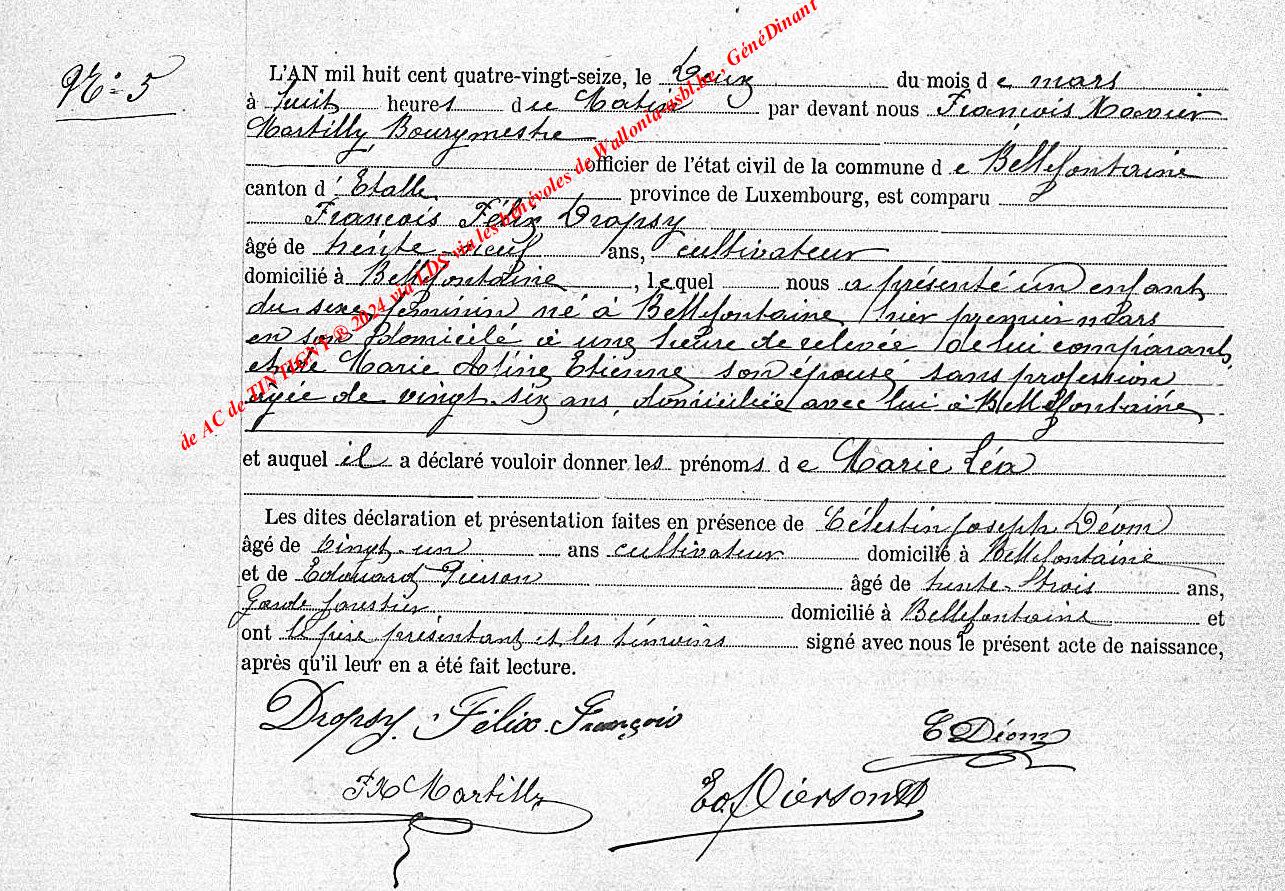 N° 5
L'AN mil huit cent quatre-vingt-seize, le Deux du mois de mars
à huit heures du Matin par devant nous François Xavier
Martilly, Bourgmestre
officier de l'état civil de la commune de Bellefontaine
canton d'Etalle province de Luxembourg, est comparu
François Félix Dropsy
âgé de trente neuf ans, cultivateur
domicilié à Bellefontaine, lequel nous a présenté un enfant
du sexe féminin né à Bellefontaine hier premier mars
en son domicile à une heure de relevée de lui comparant,
et de Marie Aline Etienne son épouse sans profession
âgée de vingt-six ans, domiciliée avec lui à Bellefontaine
et auquel il a déclaré vouloir donner les prénoms de Marie Léa
Les dites déclaration et présentation faites en présence de Célestin Joseph Déom
âgé de vingt-un ans cultivateur domicilié à Bellefontaine
et de Edouard Pierson âgé de trente-trois ans,
Garde forestier domicilié à Bellefontaine et
ont le père présentant et les témoins signé avec nous le présent acte de naissance,
après qu'il leur en a été fait lecture.
Dropsy. Félix. François
C Déom
FX Martilly
Ed. Pierson
de AC de TINTIGNY ® 2024 via LDS via les bénévoles de Wallonia-asbl.be, GénéDinant